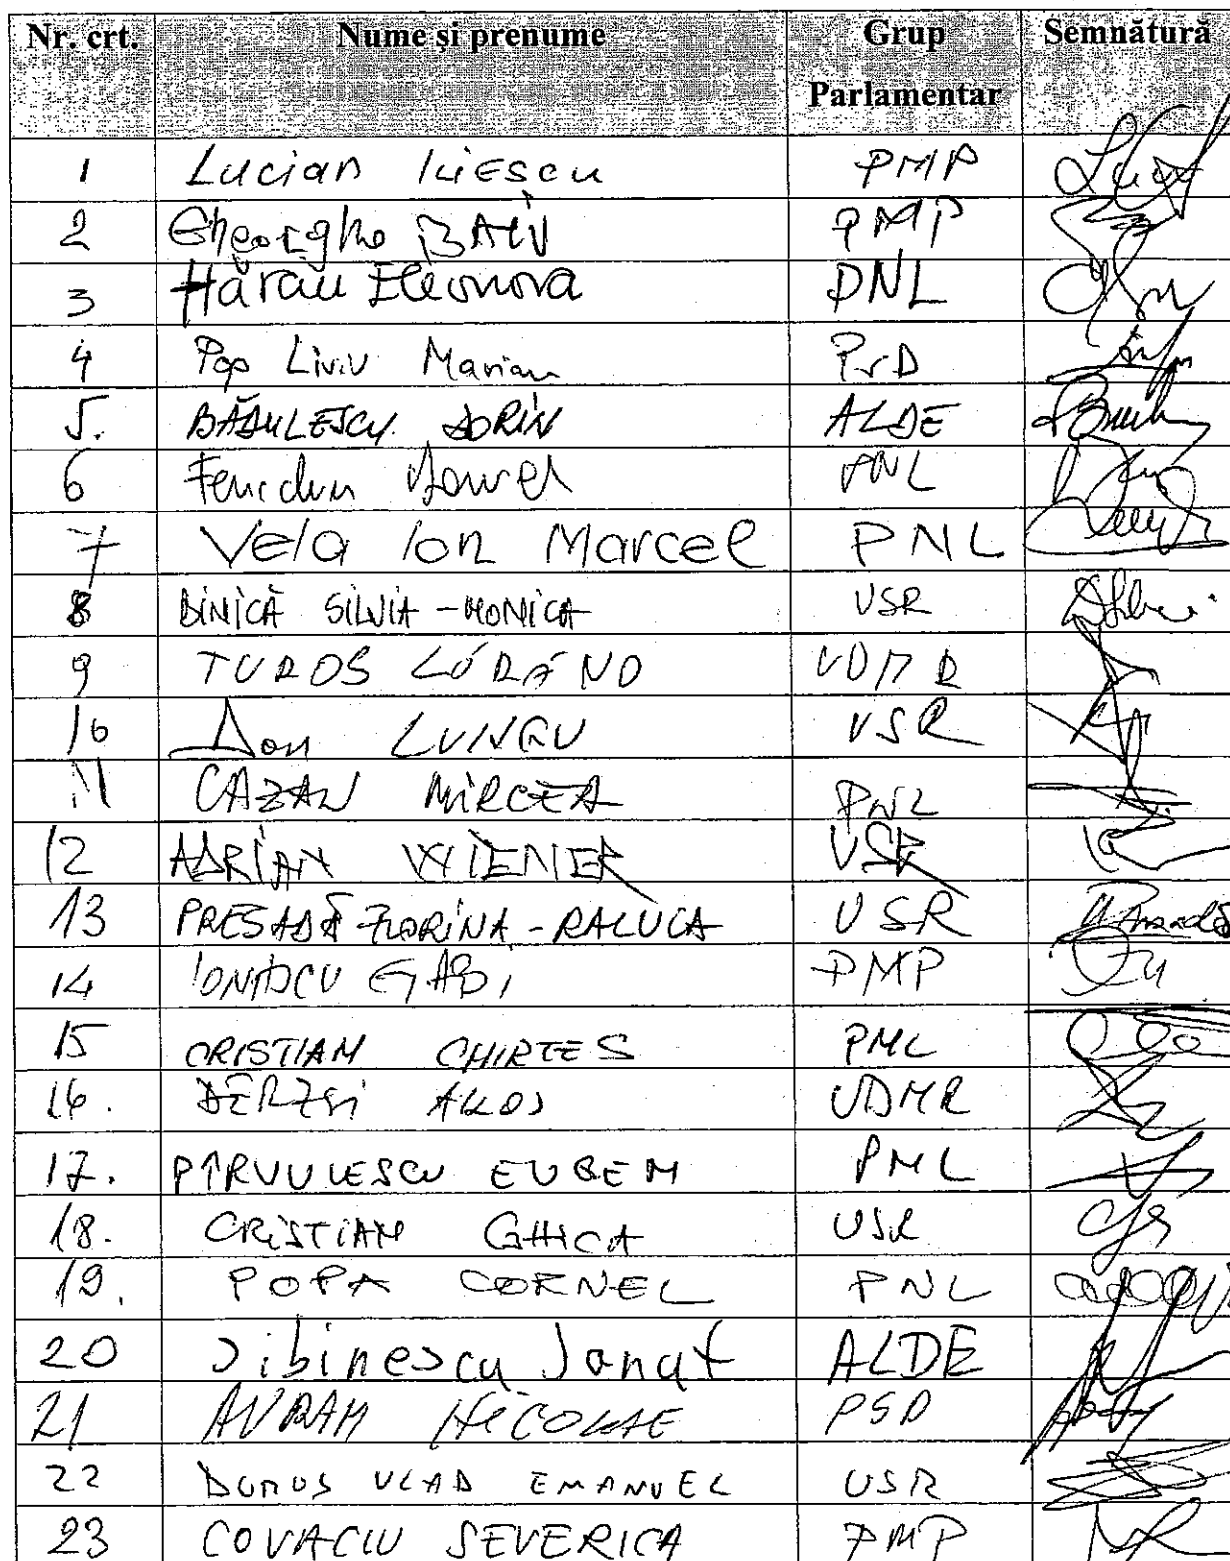 Nr. crt. Nume și prenume Grup Parlamentar Semnătură
1 Lucian Iliescu PMP
2 Gheorghe PMP
3 Hărău Eleonora PNL
4 Pop Liviu Marian PSD
5. BĂDULESCU DORIN ALDE
6 PNL
7 Vela Ion Marcel PNL
8 DINICĂ SILVIA-MONICA USR
9 TUROS LÓRÁND UDMR
10 Dan LUNGU USR
11 CAZAN MIRCEA PNL
12 ADRIAN WIENER USR
13 PRESADĂ FLORINA-RALUCA USR
14 IONAȘCU GABI PMP
15 CRISTIAN CHIRTEȘ PNL
16. DERZSI AKOS UDMR
17. PÎRVULESCU EUGEN PNL
18. CRISTIAN GHICA USR
19. POPA CORNEL PNL
20 Sibinescu Ionuț ALDE
21 AVRAM NICOLAE PSD
22 VLAD EMANUEL USR
23 COVACIU SEVERICA PMP